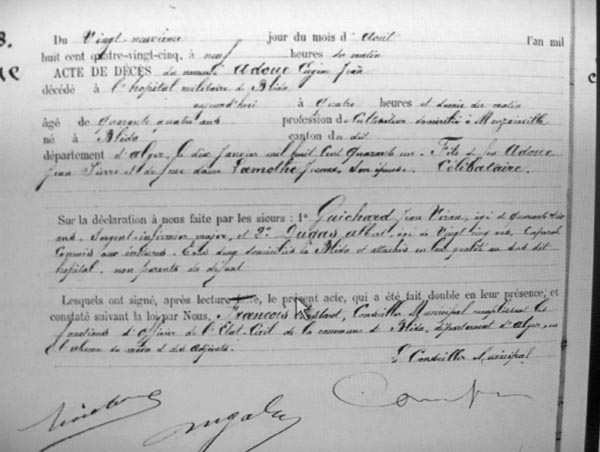 8.
Du Vingt neuvième jour du mois d'Avril l'an mil
huit cent quatre-vingt-cinq, à neuf heures du matin
ACTE DE DÉCÈS du nommé Adoue Eugène Jean
décédé à l'hôpital militaire de Blida
aujourd'hui à quatre heures et demie du matin
âgé de quarante quatre ans profession de Cultivateur domicilié à Mouzaïaville
né à Blida canton du dit
département d'alger, le dix Janvier mil huit Cent quarante un. Fils de feu Adoue
Jean Pierre et de feue dame Lamothe Jeanne, Son épouse. Célibataire.
Sur la déclaration à nous faite par les sieurs : 1° Guichard Jean
ans, Sergent infirmier major, et 2° Dugas albert âgé de Vingt cinq ans, Caporal
Commis aux écritures. Tous deux domiciliés à Blida et attachés en leur qualité au sus dit
hôpital. non parents du défunt
Lesquels ont signé, après lecture le présent acte, qui a été fait double en leur présence, et
constaté suivant la loi par Nous, François Conseiller Municipal remplissant les
fonctions d'Officier de l'Etat-Civil de la commune de Blida, département d'alger, en
l'absence du maire et des adjoints.
Le Conseiller Municipal